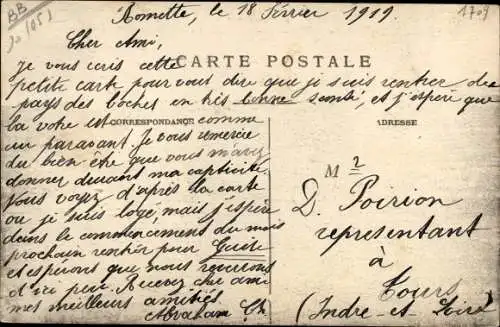 BB
1709
Romette, le 18 Février 1919
Cher Ami,
Je vous ecris cette
CARTE POSTALE
petite carte pour vous dire que je suis rentrer des
pays des boches en très bonne santé, et j'espère que
la votre est comme
CORRESPONDANCE
ADRESSE
au paravant. Je vous remercie
du bien être que vous m'avez
donner durant ma captivité.
Vous voyez d'après la carte
ou je suis logé, mais j'espère
dans le commencement du mois
prochain rentrer pour
et esperons que nous reverrons
d'ici peu. Recevez cher ami
mes meilleurs amitiés
Abraham
M
D. Poirion
representant
à
Tours
(Indre-et-Loire)